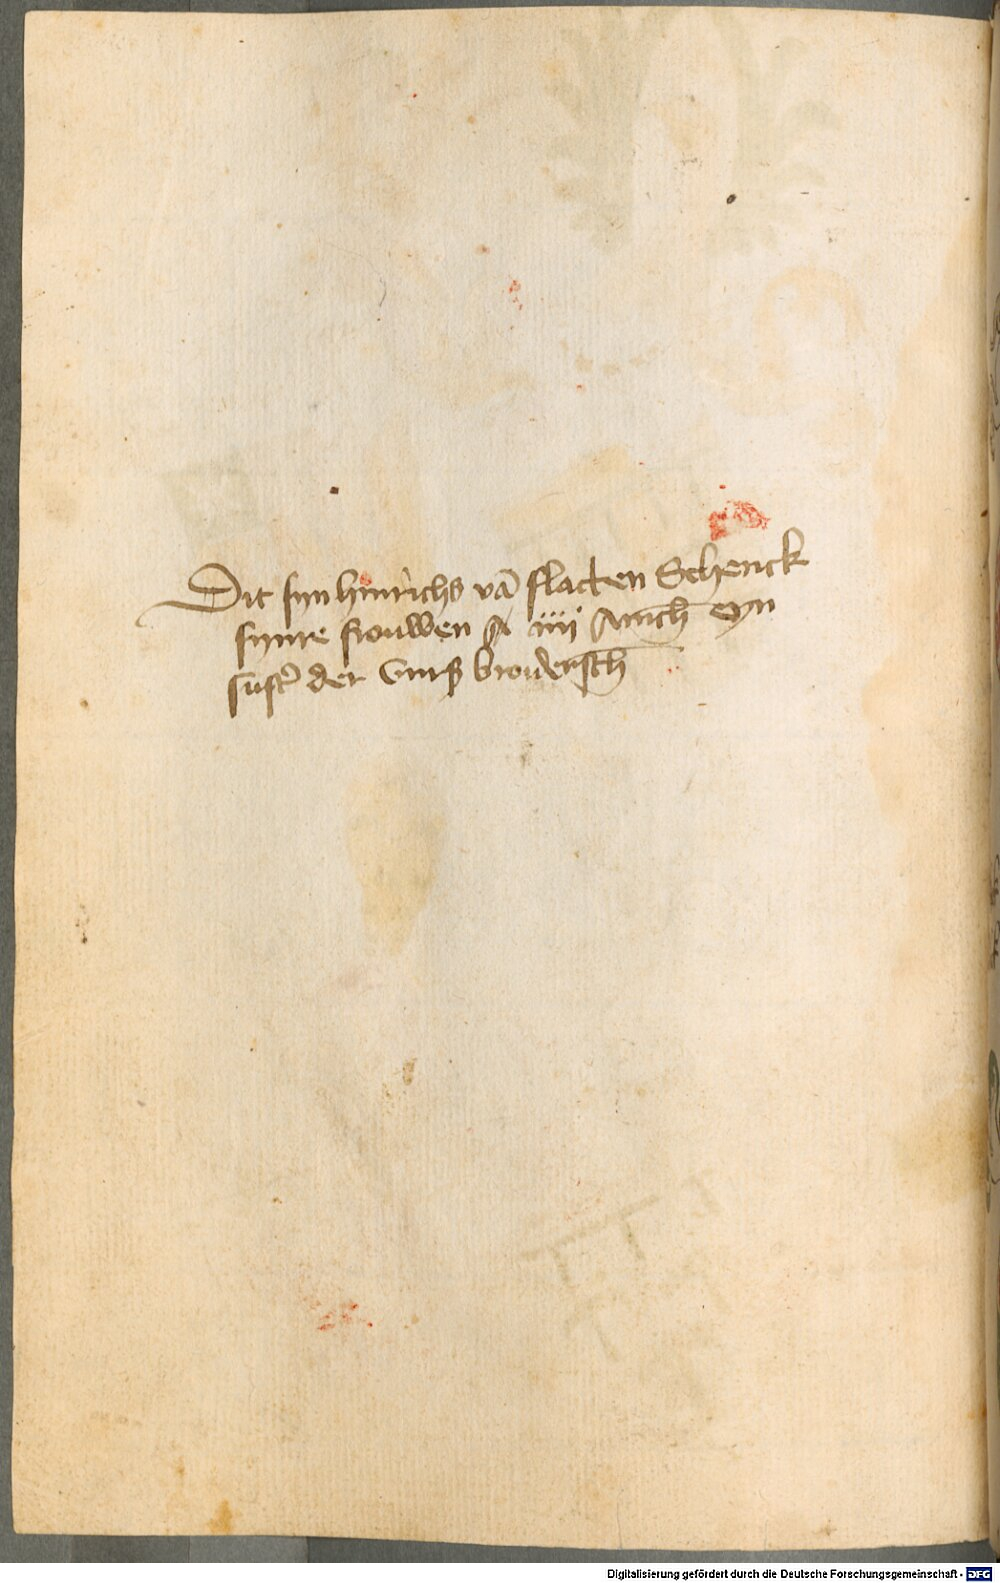 Dit syn hinrichs vā flacken Schenck
synre frouwen iiij ein
sust᾽ der brouderscħ
Digitalisierung gefördert durch die Deutsche Forschungsgemeinschaft - DFG